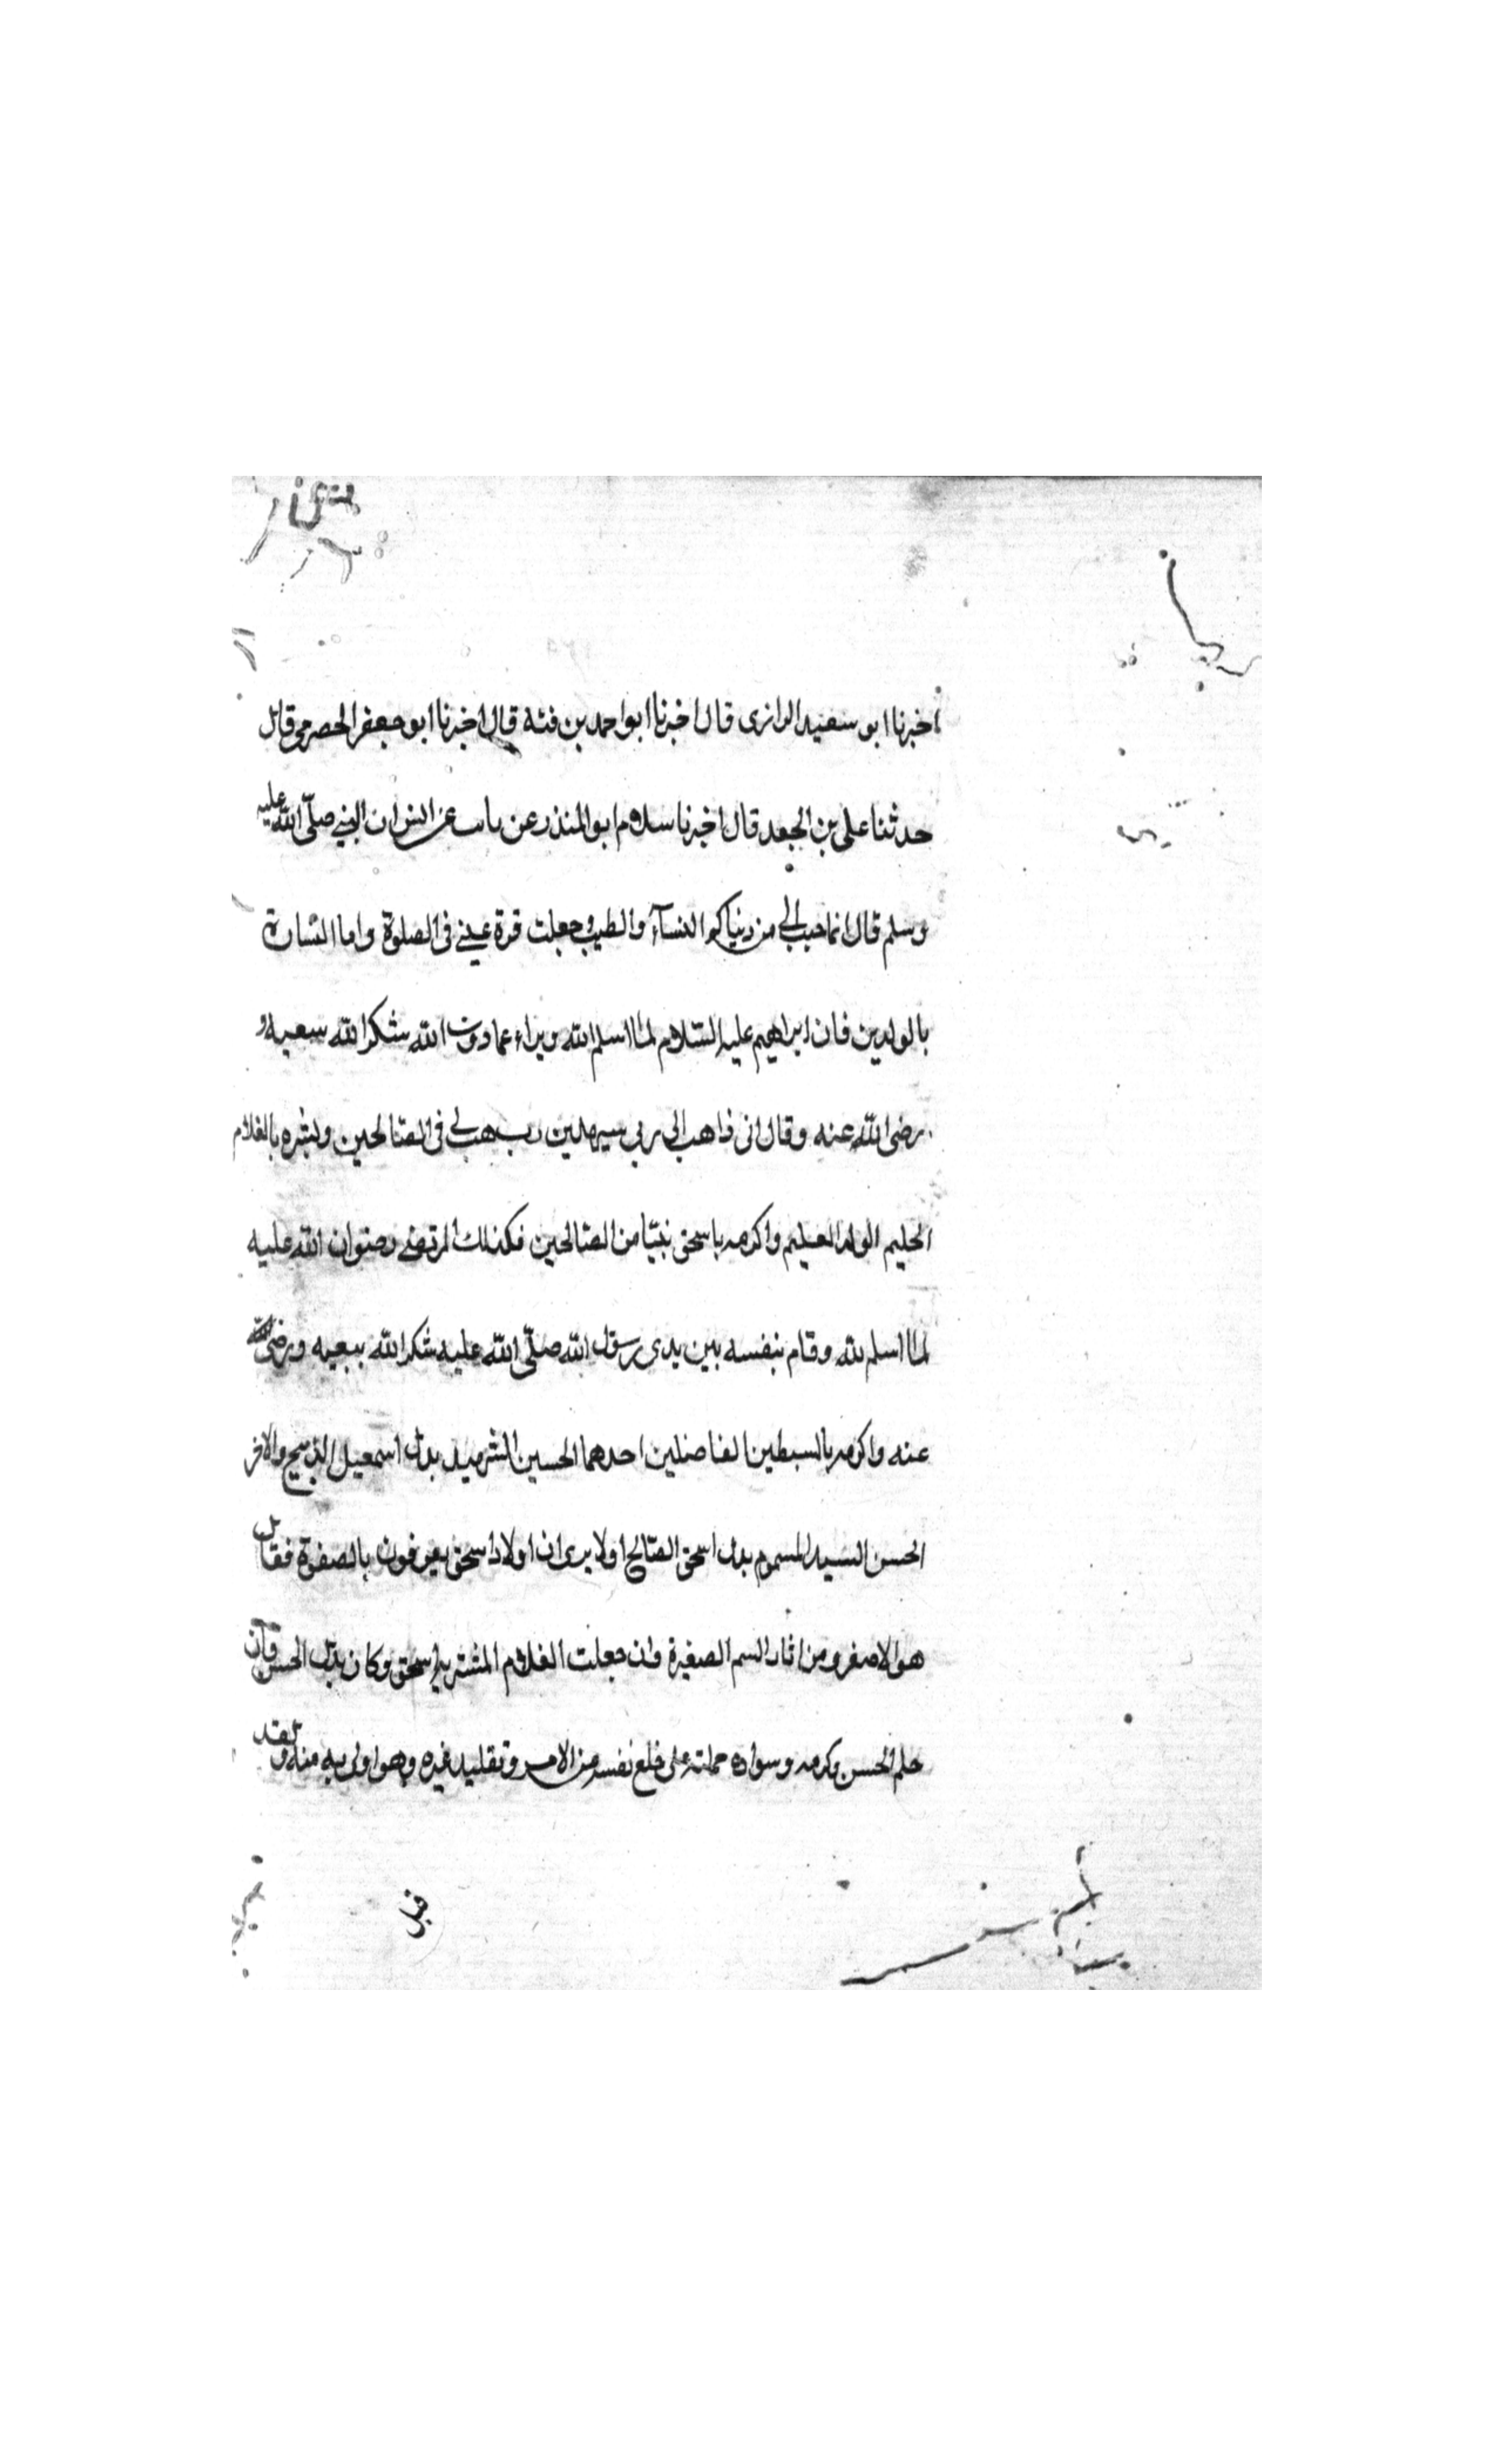 اخبرنا ابو سعيد الرازى قال اخبرنا ابو احمد بن فنه قال اخبرنا ابو جعفر الحصرمى قال
حدثنا على بن الجعد قال اخبرنا سلام ابو المنذر عن ثابت عن انس ان النبي صلّى الله عليه
وسلم قال انما حبب الى من دنياكم النسآء والطيب وجعلت قرة عيني فى الصلوة واما البشارة
بالولدين فان ابراهيم عليه السّلام لما اسلم لله وبراء عما دون الله شكر الله سعيه و
رضى الله عنه وقال انى ذاهب الى ربى سيهدين رب هب لى فى الصّالحين وبشره بالغلام
الحليم الولد العليم واكرمه باسحق نبيّا من الصّالحين فكذلك المرتضى رضوان الله عليه
لما اسلم لله وقام بنفسه بين يدى رسول الله صلّى الله عليه شكر الله سعيه ورضى الله
عنه واكرمه بالسبطين الفاضلين احدهما الحسين الشهيد بدل اسمعيل الذبيح والاخر
الحسن السيد المسموم بدل اسحق الصّالح اولا يرى ان اولاد اسحق يعرفون بالصفرة فقال
هو الاصفر ومن اثار السم الصفرة وان جعلت الغلام المبشر به اسحق وكان بدل الحسن فان
حلم الحسن وكرمه وسواده حملته على خلع نفسه من الامر وتقليد غيره وهو اولى به منه ولقد
قيل